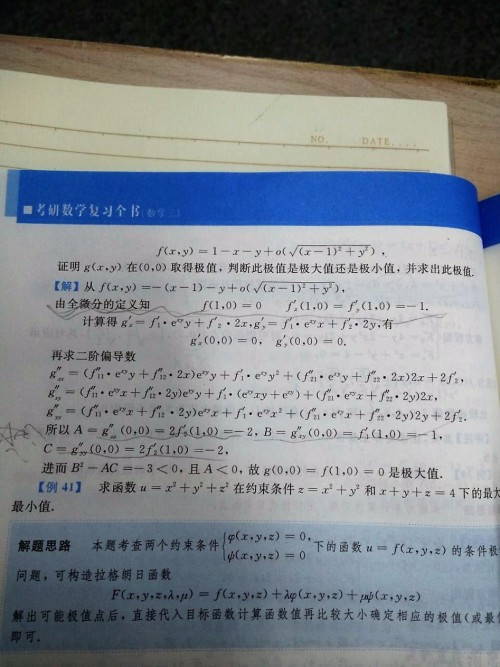 NO. DATE
■考研数学复习全书(数学三)
f(x,y) = 1 - x - y + o(√((x-1)² + y²)) ,
证明 g(x,y) 在(0,0) 取得极值，判断此极值是极大值还是极小值，并求出此极值.
【解】 从 f(x,y) = -(x-1) - y + o(√((x-1)² + y²)),
由全微分的定义知 f(1,0) = 0 f′ₓ(1,0) = f′ᵧ(1,0) = -1.
计算得 g′ₓ = f′₁ · e^{xy}y + f′₂ · 2x, g′ᵧ = f′₁ · e^{xy}x + f′₂ · 2y, 有
g′ₓ(0,0) = 0, g′ᵧ(0,0) = 0.
再求二阶偏导数
g″ₓₓ = (f″₁₁ · e^{xy}y + f″₁₂ · 2x)e^{xy}y + f′₁ · e^{xy}y² + (f″₂₁ · e^{xy}y + f″₂₂ · 2x)2x + 2f′₂,
g″ₓᵧ = (f″₁₁ · e^{xy}x + f″₁₂ · 2y)e^{xy}y + f′₁ · (e^{xy}xy + e^{xy}) + (f″₂₁ · e^{xy}x + f″₂₂ · 2y)2x,
g″ᵧᵧ = (f″₁₁ · e^{xy}x + f″₁₂ · 2y)e^{xy}x + f′₁ · e^{xy}x² + (f″₂₁ · e^{xy}x + f″₂₂ · 2y)2y + 2f′₂.
所以 A = g″ₓₓ(0,0) = 2f′₂(1,0) = -2, B = g″ₓᵧ(0,0) = f′₁(1,0) = -1,
C = g″ᵧᵧ(0,0) = 2f′₂(1,0) = -2,
进而 B² - AC = -3 < 0, 且 A < 0, 故 g(0,0) = f(1,0) = 0 是极大值.
【例 41】 求函数 u = x² + y² + z² 在约束条件 z = x² + y² 和 x + y + z = 4 下的最大
最小值.
解题思路 本题考查两个约束条件 {φ(x,y,z) = 0, ψ(x,y,z) = 0 下的函数 u = f(x,y,z) 的条件极
问题，可构造拉格朗日函数
F(x,y,z,λ,μ) = f(x,y,z) + λφ(x,y,z) + μψ(x,y,z)
解出可能极值点后，直接代入目标函数计算函数值再比较大小确定相应的极值(或最
即可.